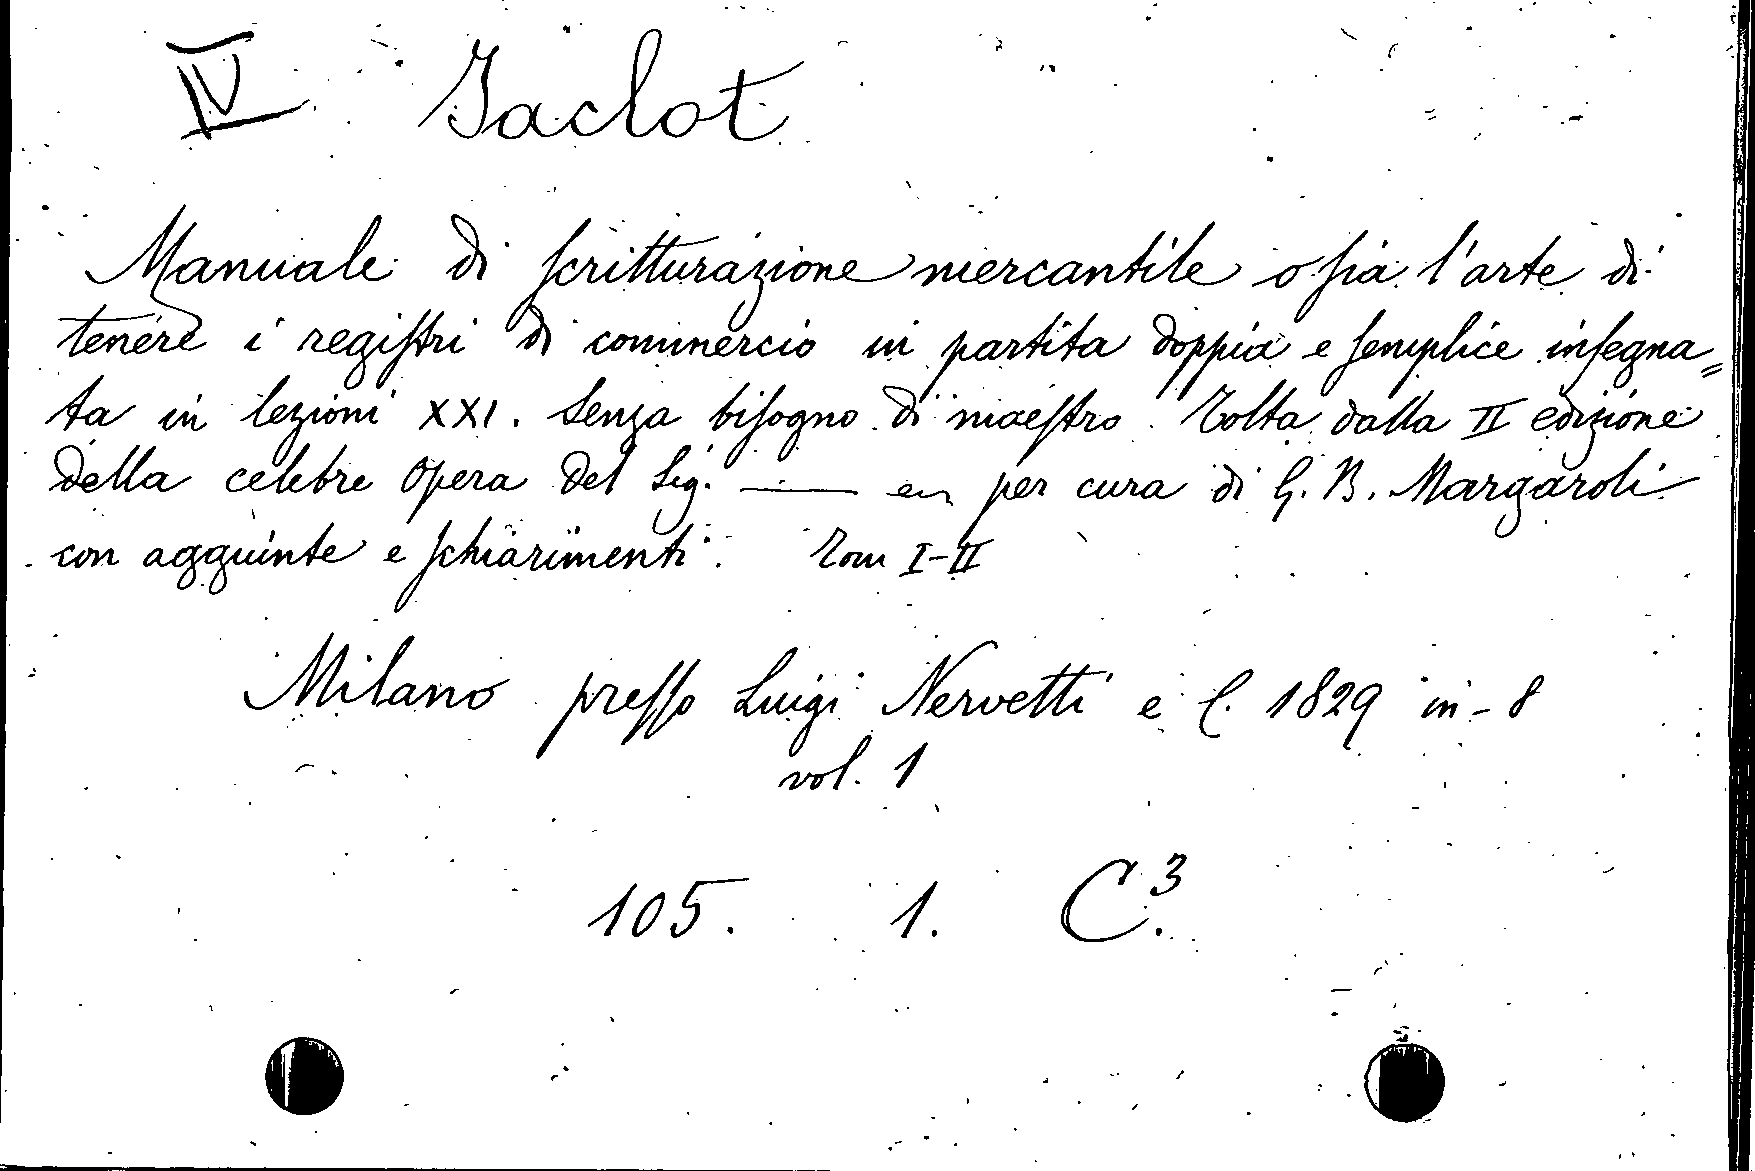 IV Jaclot
Manuale di scritturazione mercantile o sia l'arte di
tenere i registri di commercio in partita doppia e semplice insegna=
ta in lezioni XXI. senza bisogno di maestro. Tolta dalla II edizione
della celebre opera del Sig. —— per cura di G. B. Margaroli
con aggiunte e schiarimenti. Tom I-II
Milano presso Luigi Nervetti e C. 1829 in-8
vol. 1
105. 1. C³.